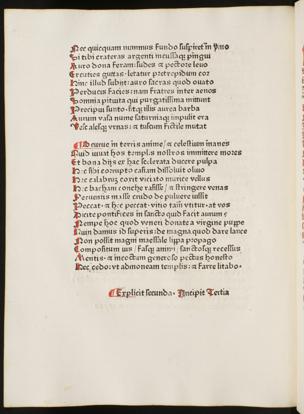 Nec quicquam nummus fundo suspiret in ymo
Si tibi crateras argenti incusaque pingui
Auro dona feram: sudes & pectore levo
Excuties guttas: letatur pretrepidum cor
Hinc illud subit: auro sacras quod ovato
Perducis facies: nam fratres inter aenos
Somnia pituita qui purgatissima mittunt
Precipui sunto: sitque illis aurea barba
Aurum vasa nume saturniaque impulit era
Vestalesque urnas: & tuscum fictile mutat
O curve in terris anime/ & celestium inanes
Quid iuvat hos templis nostros immittere mores
Et bona dijs ex hac scelerata ducere pulpa
Hec sibi corrupto casiam dissoluit olivo
Hec calabrum coxit viciato murice vellus
Hec baccam conche rasisse/ & stringere venas
Ferventis masse crudo de pulvere iussit
Peccat & hec peccat: vitio tamen utitur at vos
Dicite pontifices in sancto quid facit aurum
Nempe hoc quod veneri donate a virgine puppe
Quin damus id superis: de magna quod dare lance
Non possit magni messale lippa propago
Compositum ius/ fasque animi/ sanctosque recessus
Mentis & incoctum generoso pectus honesto
Hec cedo: ut admoveam templis: & farre litabo.
Explicit secunda. Incipit Tertia